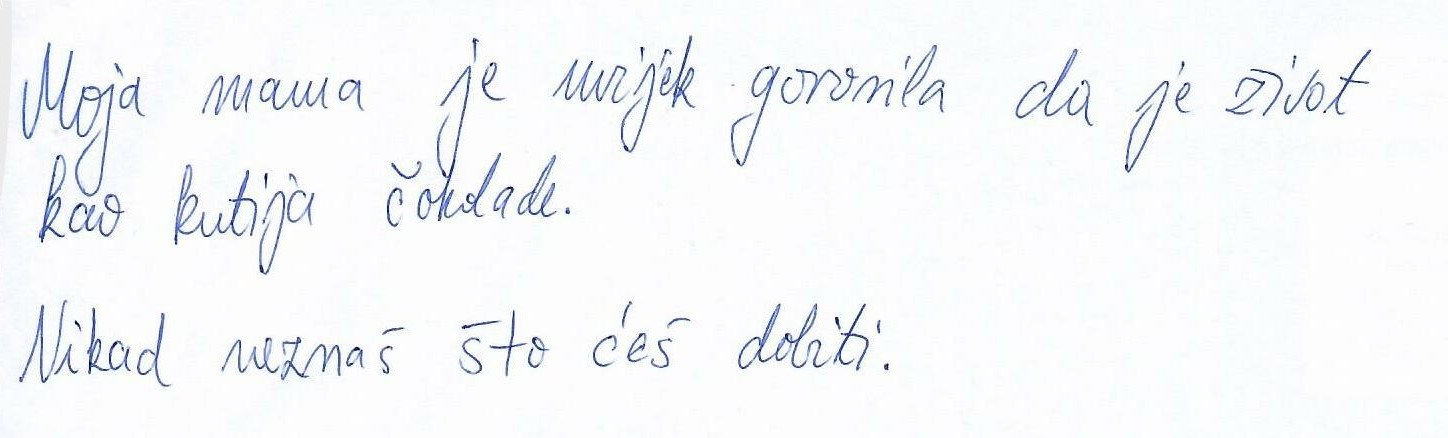 Moja mama je uvijek govorila da je život
kao kutija čokolade.
Nikad neznaš što ćeš dobiti.